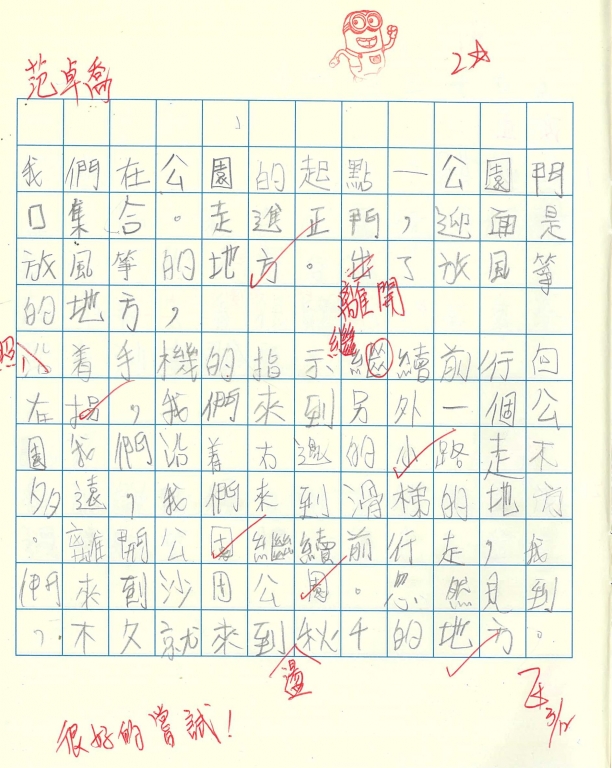 2☆
范卓喬
我們在公園的起點一公園門
口集合。走進正門,迎面是
放風箏的地方。出了放風箏
離開
的地方,
繼
照
沿着手機的指示繼續前行向
右拐,我們來到另外一個公
園我們沿着右邊的小路走不
多遠,我們來到滑梯的地方
。離開公園繼續前行走,我
們來到沙田公園。忽然見到
,.不久就來到秋千的地方。
盪
很好的嘗試!